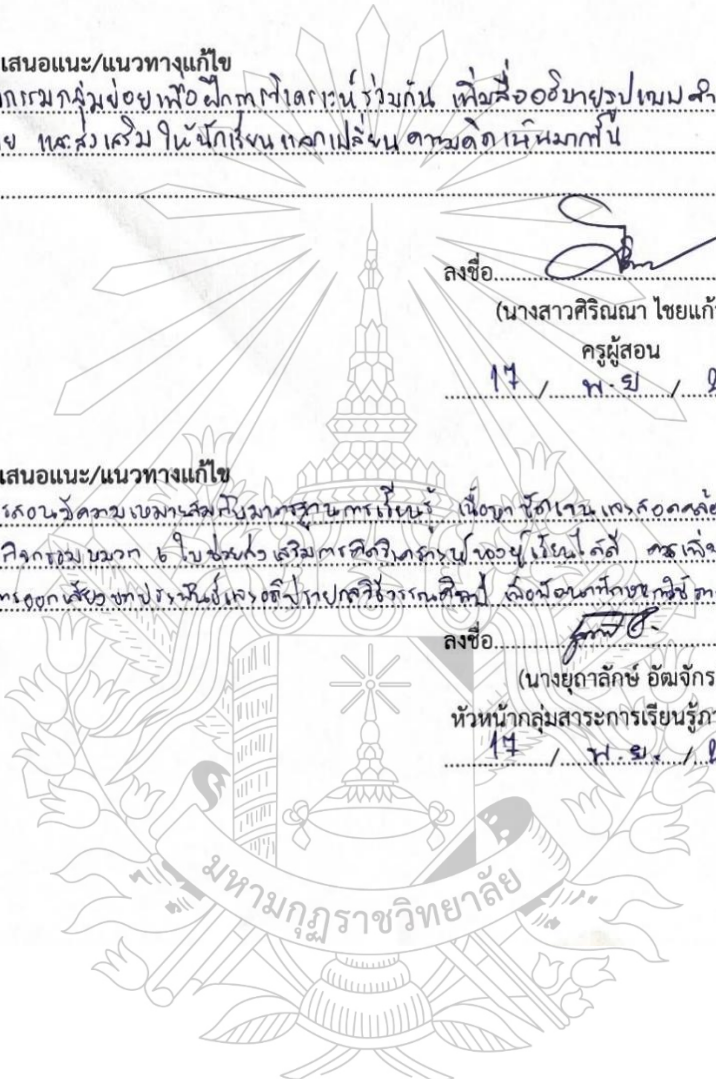 เสนอแนะ/แนวทางแก้ไข
กรรมกลุ่มย่อยเพื่อฝึกการวิเคราะห์ร่วมกัน เพิ่มสื่ออธิบายรูปแบบคำ
ย และส่งเสริมให้นักเรียนแลกเปลี่ยนความคิดเห็นมากขึ้น
ลงชื่อ
(นางสาวศิริณณา ไชยแก้
ครูผู้สอน
17 / พ.ย /
เสนอแนะ/แนวทางแก้ไข
รสอนมีความเหมาะสมกับมาตรฐานการเรียนรู้ เนื้อหาชัดเจนและสอดคล้อ
กิจกรรมหมวก 6 ใบช่วยส่งเสริมการคิดวิเคราะห์ของผู้เรียนได้ดี ควรเพิ่
การออกเสียงบทประพันธ์และอภิปรายกลวิธีวรรณศิลป์ เพื่อพัฒนาทักษะการใช้
ลงชื่อ
(นางยุถาลักษ์ อัฒจักร
หัวหน้ากลุ่มสาระการเรียนรู้ภา
17 / พ.ย. /
มหามกุฏราชวิทยาลัย